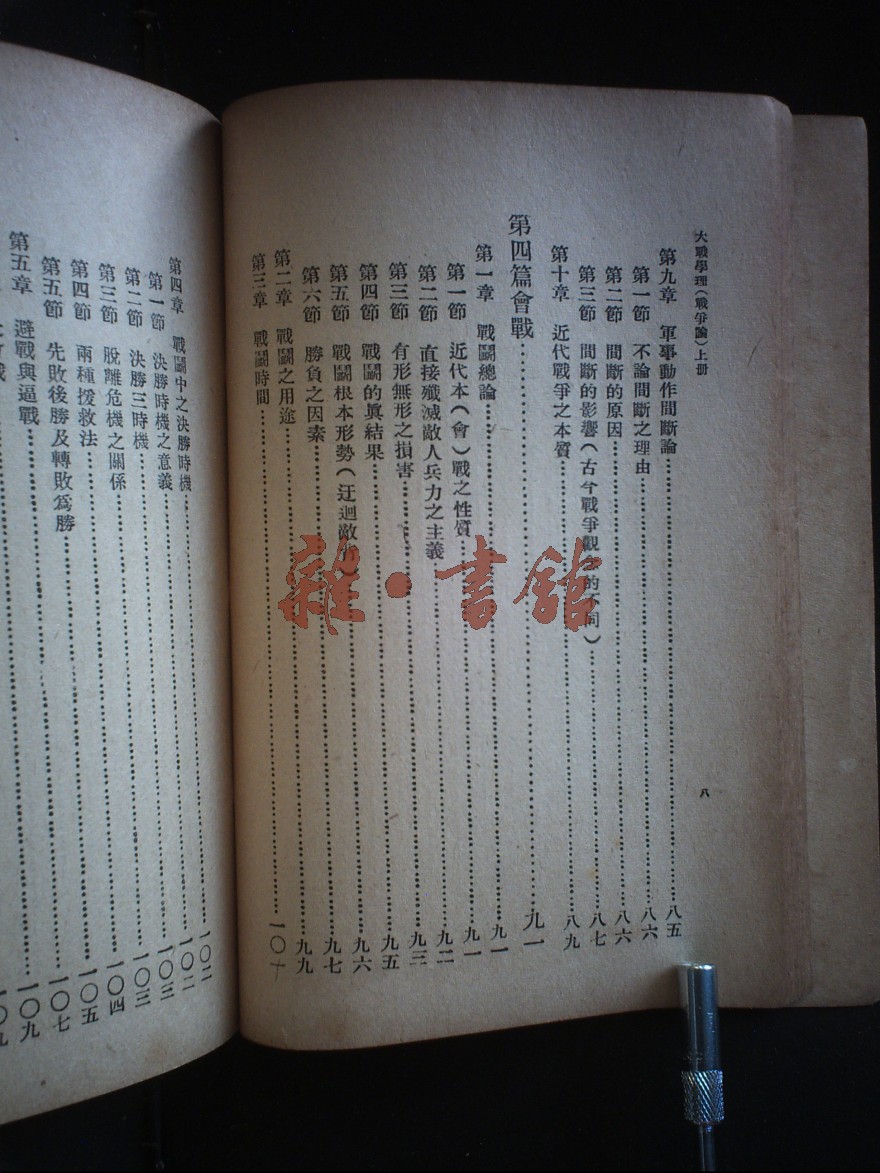 大戰學理（戰爭論）上册
八
第九章　軍事動作間斷論⋯⋯八五
第一節　不論間斷之理由⋯⋯八六
第二節　間斷的原因⋯⋯八六
第三節　間斷的影響（古今戰爭觀念的不同）⋯⋯八七
第十章　近代戰爭之本質⋯⋯八九
第四篇會戰⋯⋯九一
第一章　戰鬭總論⋯⋯九一
第一節　近代本（會）戰之性質⋯⋯九一
第二節　直接殲滅敵人兵力之主義⋯⋯九二
第三節　有形無形之損害⋯⋯九三
第四節　戰鬭的眞結果⋯⋯九五
第五節　戰鬭根本形勢（迂迴敵背）⋯⋯九六
第六節　勝負之因素⋯⋯九七
第二章　戰鬭之用途⋯⋯九九
第三章　戰鬭時間⋯⋯一〇
第四章　戰鬭中之決勝時機⋯⋯一〇二
第一節　決勝時機之意義⋯⋯一〇二
第二節　決勝三時機⋯⋯一〇三
第三節　脫離危機之關係⋯⋯一〇三
第四節　兩種援救法⋯⋯一〇四
第五節　先敗後勝及轉敗爲勝⋯⋯一〇五
第五章　避戰與逼戰⋯⋯一〇七
一〇九
雜·書館